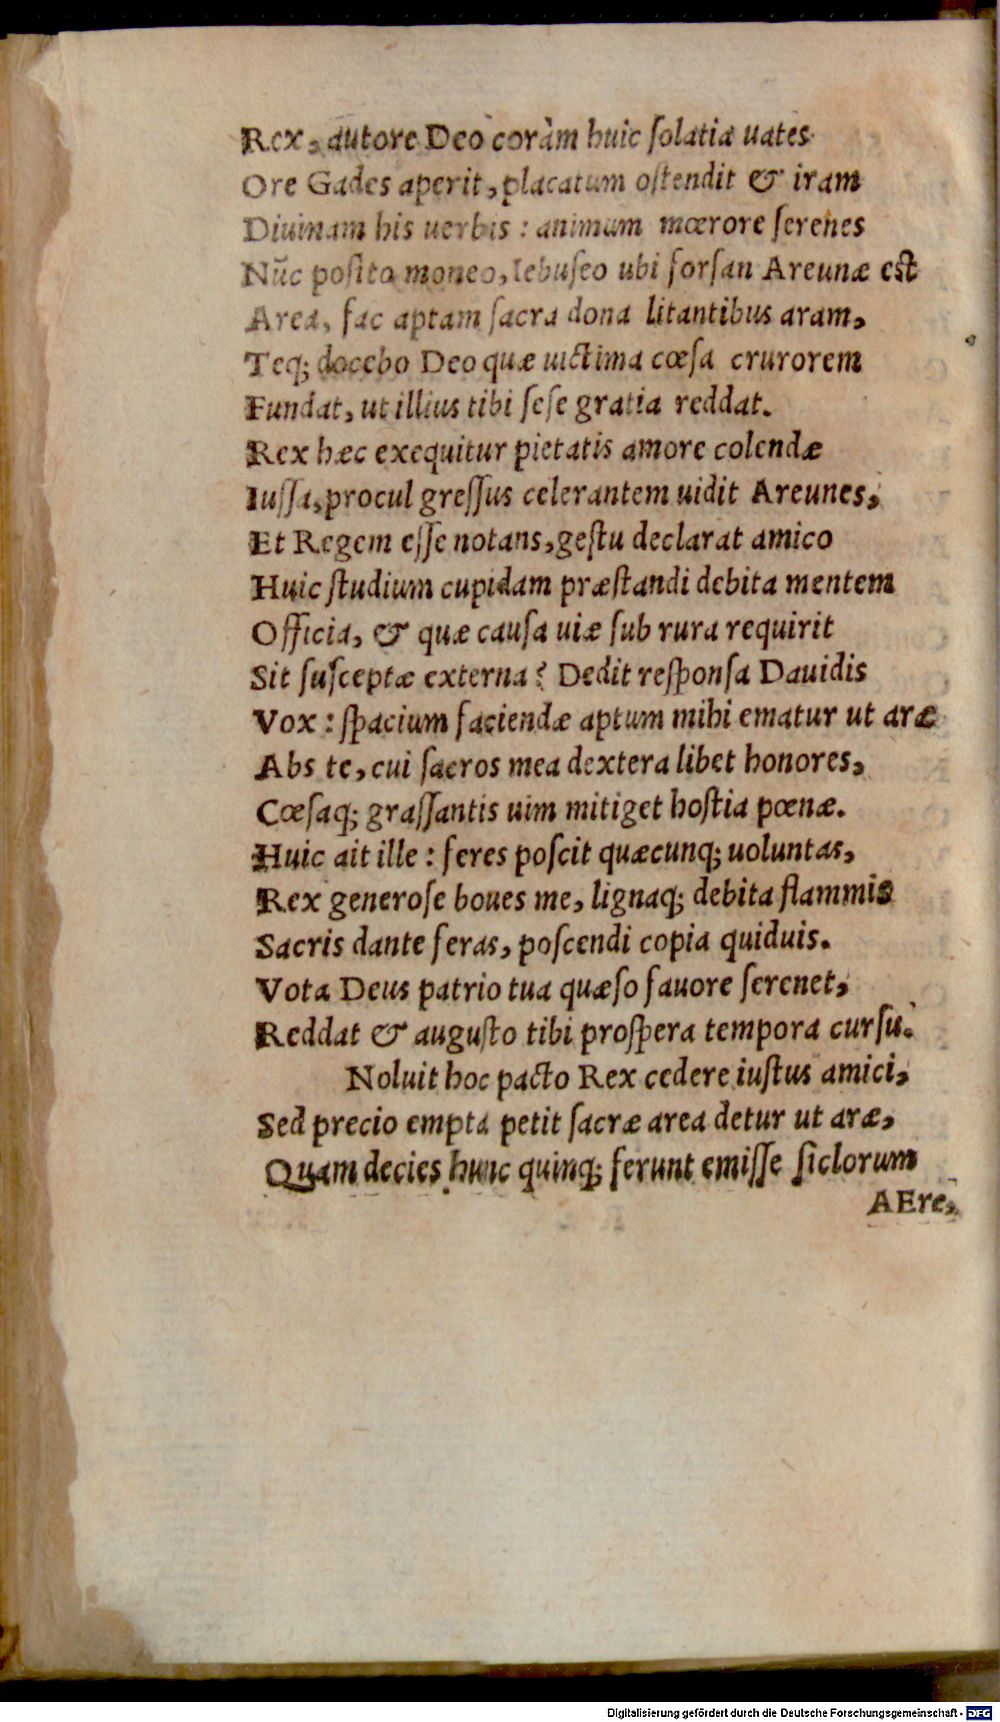 Rex, autore Deo coràm huic ſolatia uates
Ore Gades aperit, placatum oſtendit & iram
Diuinam his uerbis : animum mœrore ſerenes
Nūc poſito moneo, Iebuſeo ubi forſan Areunæ eſt
Area, fac aptam ſacra dona litantibus aram,
Teq; docebo Deo quæ uictima cœſa crurorem
Fundat, ut illius tibi ſeſe gratia reddat.
Rex hæc exequitur pietatis amore colendæ
Iuſſa, procul greſſus celerantem uidit Areunes,
Et Regem eſſe notans, geſtu declarat amico
Huic ſtudium cupidam præſtandi debita mentem
Officia, & quæ cauſa uiæ ſub rura requirit
Sit ſuſceptæ externa? Dedit reſponſa Dauidis
Vox : ſpacium faciendæ aptum mihi ematur ut aræ
Abs te, cui ſacros mea dextera libet honores,
Cœſaq; graſſantis uim mitiget hoſtia pœnæ.
Huic ait ille : feres poſcit quæcunq; uoluntas,
Rex generoſe boues me, lignaq; debita flammis
Sacris dante feras, poſcendi copia quiduis.
Vota Deus patrio tua quæſo fauore ſerenet,
Reddat & auguſto tibi proſpera tempora curſu.
Noluit hoc pacto Rex cedere iuſtus amici,
Sed precio empta petit ſacræ area detur ut aræ,
Quam decies hunc quinq; ferunt emiſſe ſiclorum
AEre,
Digitalisierung gefördert durch die Deutsche Forschungsgemeinschaft - DFG